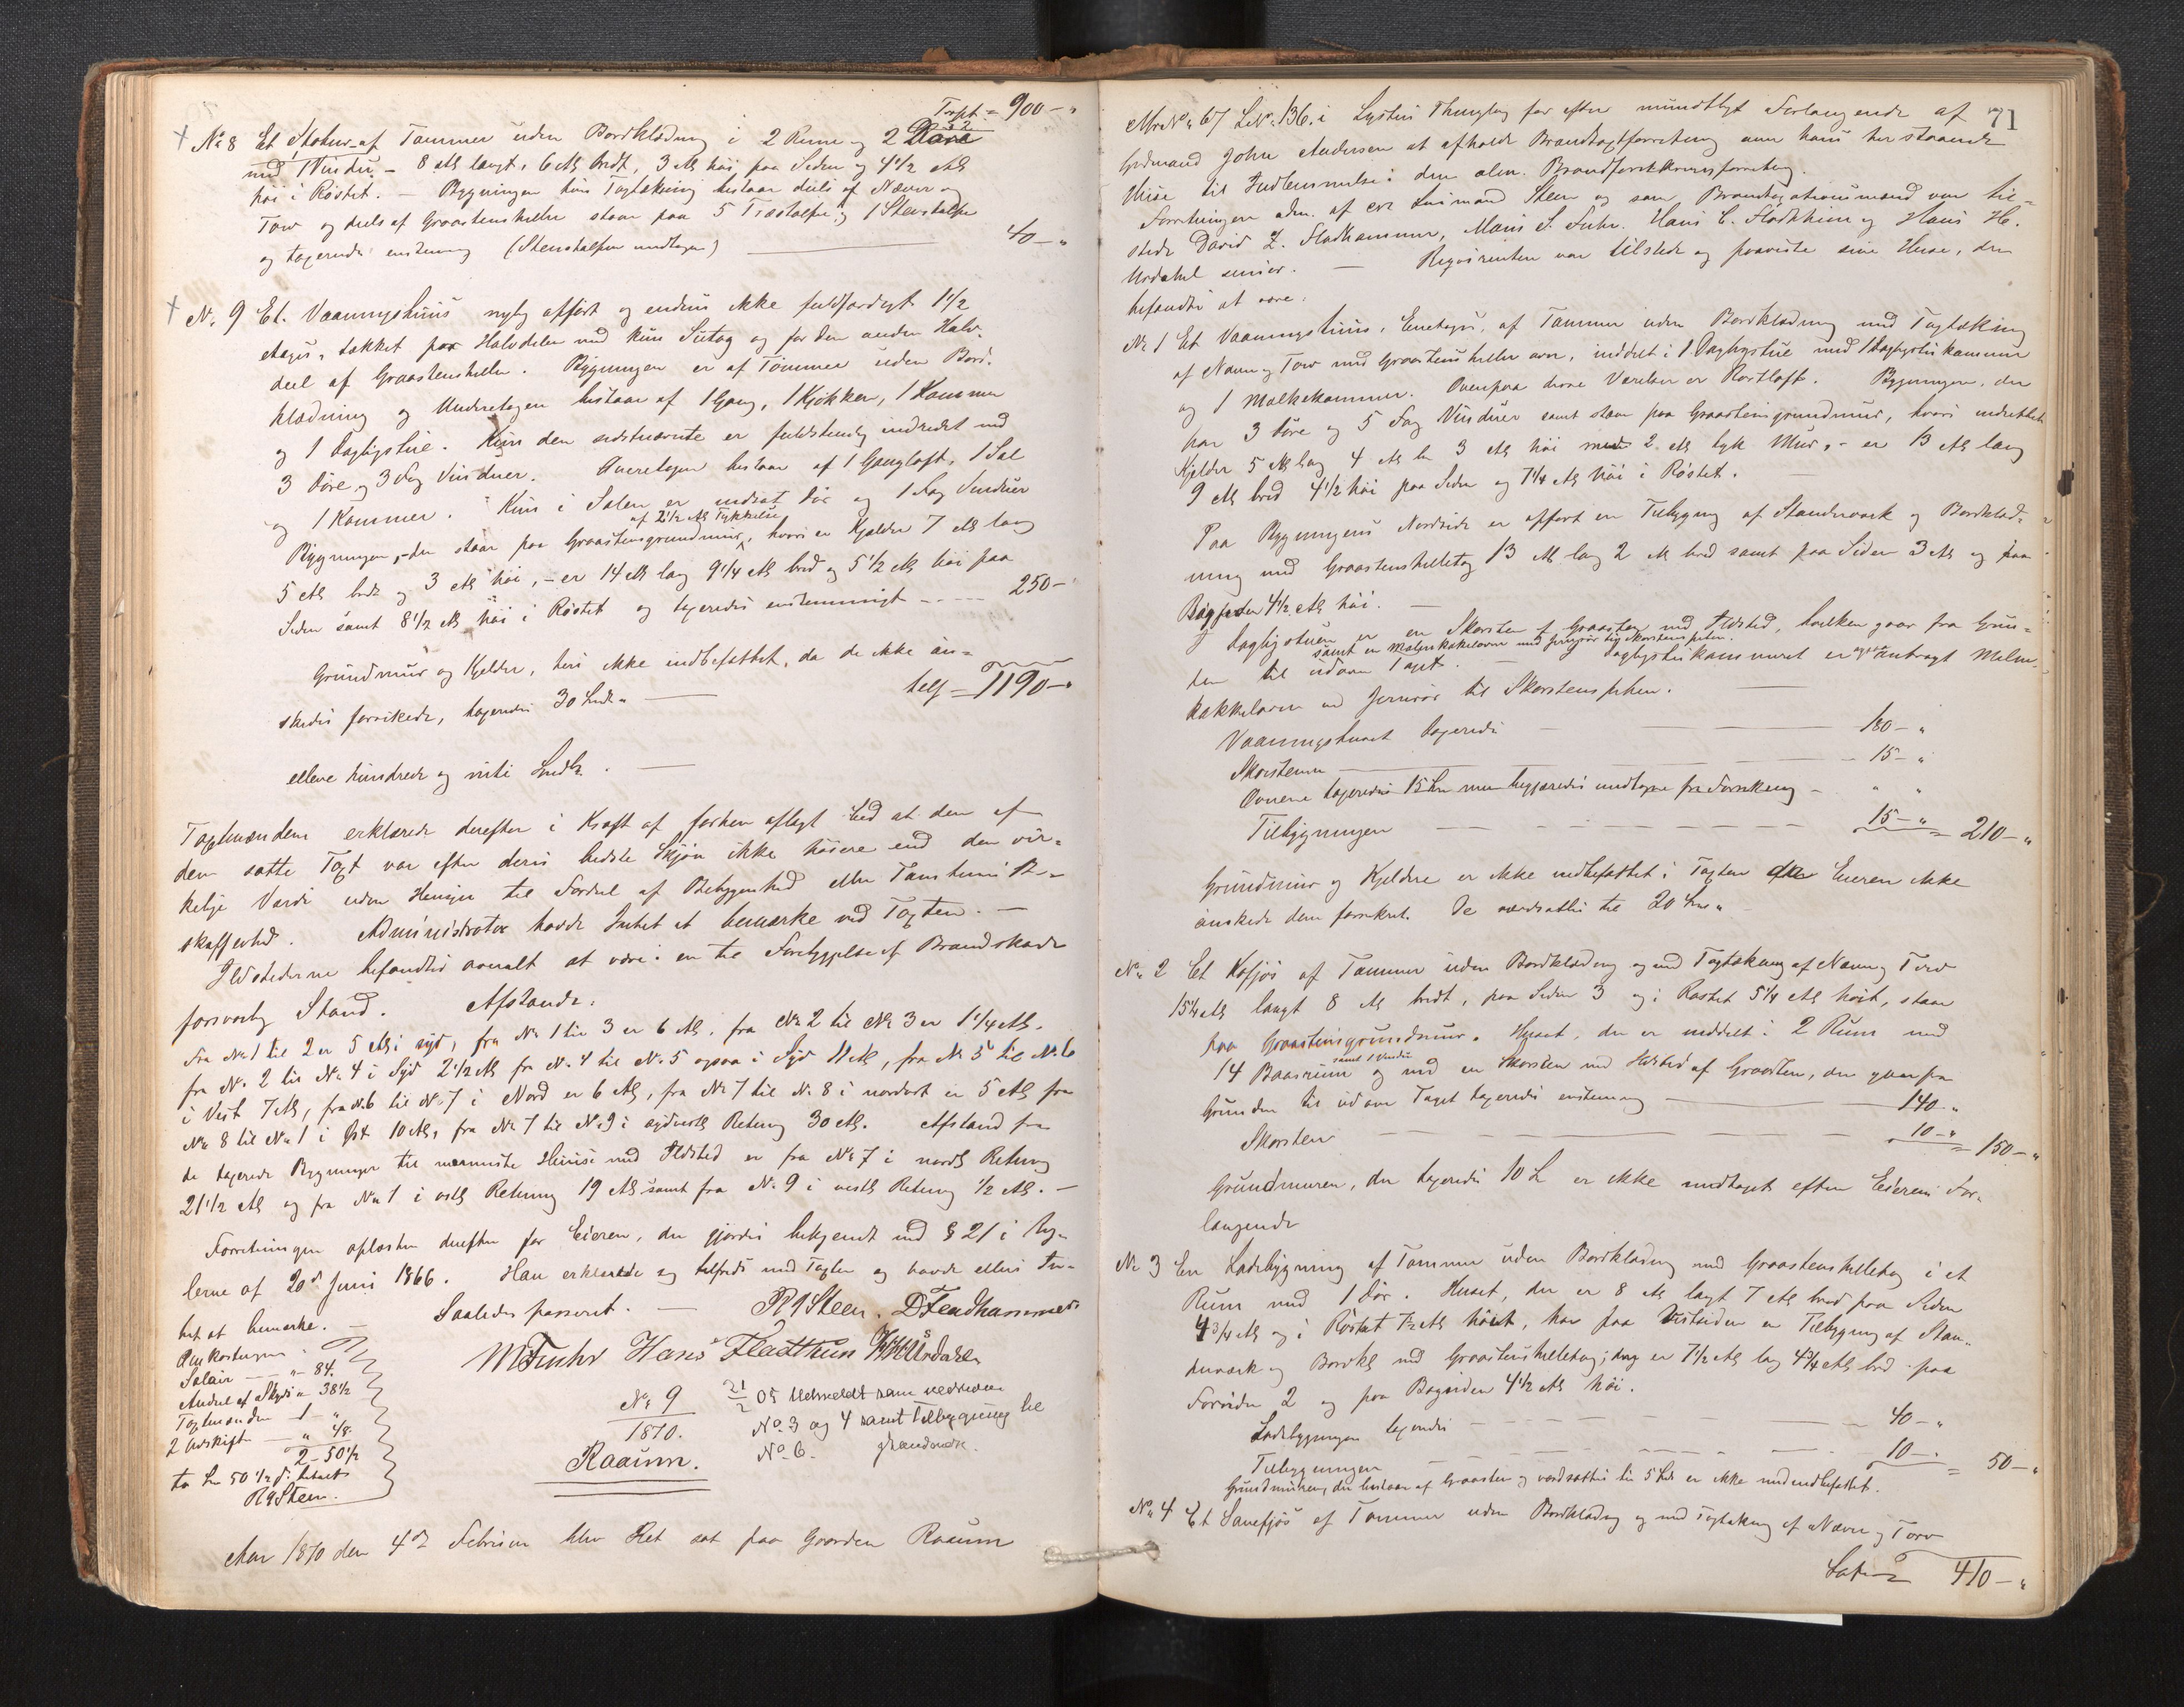 Trspt = 900 – "
+ No 8 Et Stolhus af Tømmer uden Bordklædning i 2 Rum og 2 Døre
med 1 Vindu. – 8 Al langt, 6 Al bredt, 3 Al høi paa Siden og 4 1/2 Al
høi i Røstet. – Bygningen hvis Tagtækning bestaar deels af Næver og
Torv og deels af Graasteenheller staar paa 5 Træstolper og 1 Stenstolpe
og taxeredes enstemmig (Stenstolpen undtagen) — 40 – "
+ No 9 Et Vaaningshuus nylig opført og endnu ikke fuldfærdigt 1 1/2
etages, tækket paa Halvdelen med kun Sutag og for den anden Halv-
deel af Graasteenheller. Bygningen er af Tømmer uden Bord-
klædning og Underetagen bestaar af 1 Gang, 1 Kjøkken, 1 Kammer
og 1 Dagligstue. Kun den sidstnævnte er fuldstændig indredet med
3 Døre og 3 Fag Vinduer. Overetagen bestaar af 1 Gangloft, 1 Sal
og 1 Kammer. Kun i Salen er indsat Dør og 1 Fag Vinduer
af 2 1/2 Al Tykkelse
Bygningen, – der staar paa Graasteensgrundmur, hvori er Kjelder 7 Al lang
5 Al bred og 3 Al høi, – er 14 Al lang 9 1/4 Al bred og 5 1/2 Al høi paa
Siden samt 8 1/2 Al høi i Røstet og taxeredes enstemmigt — 250 –
Grundmur og Kjelder, hvis ikke indbefattet, da de ikke øn-
skedes forsikrede, taxeredes 30 Spd. " — tils = 1190 – "
elleve hundrede og niti Spdlr. —
Taxtmændene erklærede derefter i Kraft af forhen aflagt Eed at den af
dem satte Taxt var efter deres bedste Skjøn ikke høiere end den vir-
kelige Værdi uden Hensyn til Fordeel af Beliggenhed eller Tomtens Be-
skaffenhed. Administrator havde Intet at bemærke ved Taxten. –
Ildstederne befandtes overalt at være i en til Forebyggelse af Brandskade
forsvarlig Stand. Afstande.
Fra No 1 til 2 er 5 Al i syd, fra No 1 til 3 er 6 Al, fra No 2 til No 3 er 1 1/4 Al.
fra No. 2 til No. 4 i Syd 2 1/2 Al fra No. 4 til No 5 ogsaa i Syd 11 Al, fra No 5 til No. 6
i Vest 7 Al, fra No. 6 til No. 7 i Nord er 6 Al, fra No 7 til No. 8 i nordost er 5 Al fra
No 8 til No 1 i Øst 10 Al, fra No 7 til No. 9 i sydvestl Retning 30 Al. Afstand fra
de taxerede Bygninger til nærmeste Huuse med Ildsted er fra No 7 i nordl Retning
21 1/2 Al og fra No 1 i østl Retning 19 Al samt fra No. 9 i vestl Retning 1/2 Al. –
Forretningen oplæstes derefter for Eieren, der gjordes bekjendt med § 21 i Reg-
lerne af 20de Juni 1866. Han erklærede sig tilfreds med Taxten og havde ellers In-
tet at bemærke. – Saaledes passeret. – R Steen. D Fladhammer
M Fuhr Hans Fladthun H H Urdahl
Omkostninger:
Salair — " – 84.
Andeel af Skyds " 38 1/2
Taxtmænden 1 – "
2 Udskrifter — " 48
2 – 50 1/2
to Sp 50 1/2 s. betalt
R Steen.
No 9
1870.
Raaum.
21/2 05 Udmeldt som nedrevne
No 3 og 4 samt Tilbygning til
No 6.
Aar 1870 den 4de Februar blev Ret sat paa Gaarden Raaum
71
Mr No. 67 L No. 136. i Lysters Thinglag for efter mundtligt Forlangende af
Gdmand John Andersen at afholde Brandtaxtforretning over hans her staaende
Huse til Indlemmelse i den alm. Brandforsikringsforretning.
Forretningen adm. af cst Lensmand Steen og som Brandtaxationsmænd var til-
stede David L. Fladhammer, Mons S. Fuhr, Hans C. Fladthun og Hans H.
Urdahl senior. — Reqvirenten var tilstede og paaviste sine Huse, der
befandtes at være:
No 1 Et Vaaningshuus, Eenetages, af Tømmer uden Bordklædning med Tagtækning
af Næver og Torv med Graasteensheller over, inddelt i 1 Dagligstue med 1 Dagligstuekammer
og 1 Melkekammer. Ovenpaa disse Værelser er Røstloft. Bygningen, der
har 3 Døre og 5 Fag Vinduer samt staar paa Graasteensgrundmur, hvori indrettet
Kjelder 5 Al lang 4 Al br 3 Al høi med 2 Al tyk Mur, – er 13 Al lang
9 Al bred 4 1/2 høi paa Siden og 7 1/4 Al høi i Røstet.
Paa Bygningens Nordside er opført en Tilbygning af Standerværk og Bordklæd-
ning med Graasteenshelletag 13 Al lang 2 Al bred samt paa Siden 3 Al og paa
Bagsiden 4 1/2 Al høi. —
I Dagligstuen er en Skorsten af Graasten med Ildsted, hvilken gaar fra Grun-
samt en Malmkakkelovn med Jernrør til Skorstenspiben.
den til udover Taget. — I Dagligstuekammeret er ogsaa anbragt Malm-
kakkelovn med Jernrør til Skorstenspiben. —
Vaaningshuset taxeredes — 180 – "
Skorstenen — 15 – "
Ovnene taxeredes 15 Spd men begjæredes undtagne fra Forsikring – " "
Tilbygningen — 15 – " = 210 – "
Grundmur og Kjeldere er ikke indbefattet i Taxten da Eieren ikke
ønskede dem forsikret. De værdsattes til 20 Spd "
No. 2 Et Kofjøs af Tømmer uden Bordklædning og med Tagtækning af Næver og Torv
15 1/4 Al langt 8 Al bredt, paa Siden 3 og i Røstet 5 1/4 Al høit, staar
paa Graasteensgrundmur. Huset, der er inddelt i 2 Rum med
samt 1 Vindu
14 Baasrum og med en Skorsten med Ildsted af Graasten, der gaar fra
Grunden til udover Taget taxeredes enstemmig — 140 – "
Skorsten — 10 – " = 150 – "
Grundmuren, der taxeredes 10 Sp er ikke medtaget efter Eierens For-
langende
No 3 En Ladebygning af Tømmer uden Bordklædning med Graasteenshelletag i et
Rum med 1 Dør. Huset, der er 8 Al langt 7 Al bred paa Siden
4 3/4 Al og i Røstet 7 1/2 Al høit, har paa Vestsiden en Tilbygning af Stan-
derværk og Bordkl med Graasteenshelletag; den er 7 1/2 Al lang 4 3/4 Al bred paa
Forsiden 2 og paa Bagsiden 4 1/2 Al høi.
Ladebygningen taxeredes — 40 – "
Tilbygningen — 10 – " = 50 – "
Grundmuren, der bestaar af Graasten og værdsattes til 5 Spd er ikke medindbefattet.
No. 4 Et Sauefjøs af Tømmer uden Bordklædning og med Tagtækning af Næver og Torv
Latus 410 – "